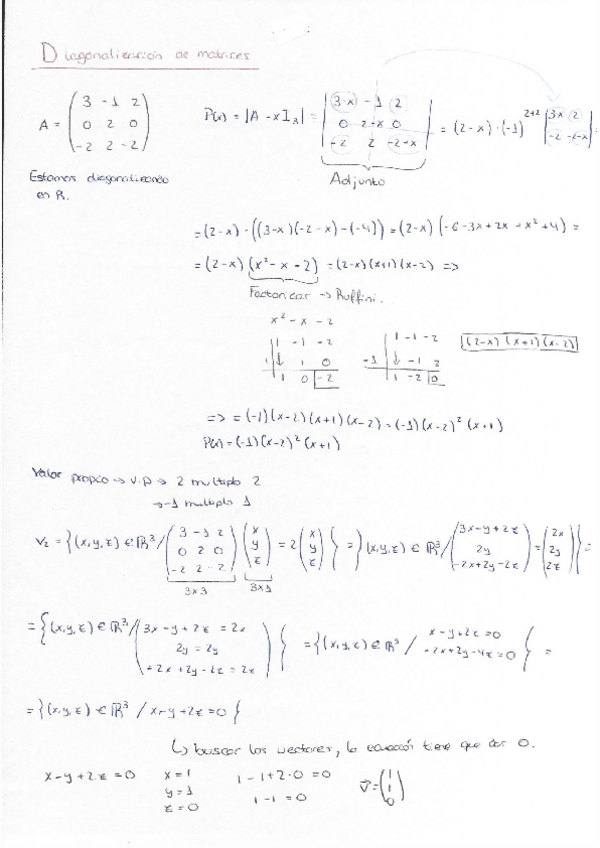 Diagonalización de matrices
A = ( 3 -1 2 ; 0 2 0 ; -2 2 -2 )
P(x) = |A - xI₃| = | 3-x -1 2 ; 0 2-x 0 ; -2 2 -2-x | = (2-x)·(-1)²⁺² | 3-x 2 ; -2 -2-x | =
Adjunto
Estamos diagonalizando
en R.
= (2-x)·((3-x)(-2-x)-(-4)) = (2-x)(-6-3x+2x+x²+4) =
= (2-x)(x²-x-2) = (2-x)(x+1)(x-2) =>
Factorizar → Ruffini.
x² - x - 2
1 -1 -2
1 ↓ 1 0
1 0 -2
1 -1 -2
-1 ↓ -1 2
1 -2 0
(2-x)(x+1)(x-2)
=> = (-1)(x-2)(x+1)(x-2) = (-1)(x-2)²(x+1)
P(x) = (-1)(x-2)²(x+1)
Valor propio → v.p → 2 multiplo 2
→ -1 multiplo 1
V₂ = {(x,y,z) ∈ R³ / ( 3 -1 2 ; 0 2 0 ; -2 2 -2 ) ( x ; y ; z ) = 2 ( x ; y ; z ) } = {(x,y,z) ∈ R³ / ( 3x-y+2z ; 2y ; -2x+2y-2z ) = ( 2x ; 2y ; 2z ) } =
3x3
3x1
= {(x,y,z) ∈ R³ / ( 3x-y+2z = 2x ; 2y = 2y ; -2x+2y-2z = 2z ) } = {(x,y,z) ∈ R³ / x-y+2z=0 ; -2x+2y-4z=0 } =
= {(x,y,z) ∈ R³ / x-y+2z=0 }
↳ buscar los vectores, la ecuación tiene que dar 0.
x-y+2z=0
x=1
y=1
z=0
1-1+2·0=0
1-1=0
v⃗ = ( 1 ; 1 ; 0 )